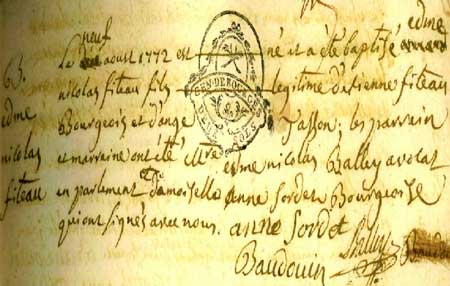 edme
neuf
Le dix aout 1772 est né et a eté baptisé
B. nicolas fiteau fils legitime d'etienne fiteau
edme Bourgeois et d'ange Fasson; les parrain
nicolas et marraine ont été Mre edme nicolas Balley avocat
fiteau en parlement Dmoiselle anne Sordet Bourgeoise
qui ont signés avec nous. anne Sordet
Baudouin Balley